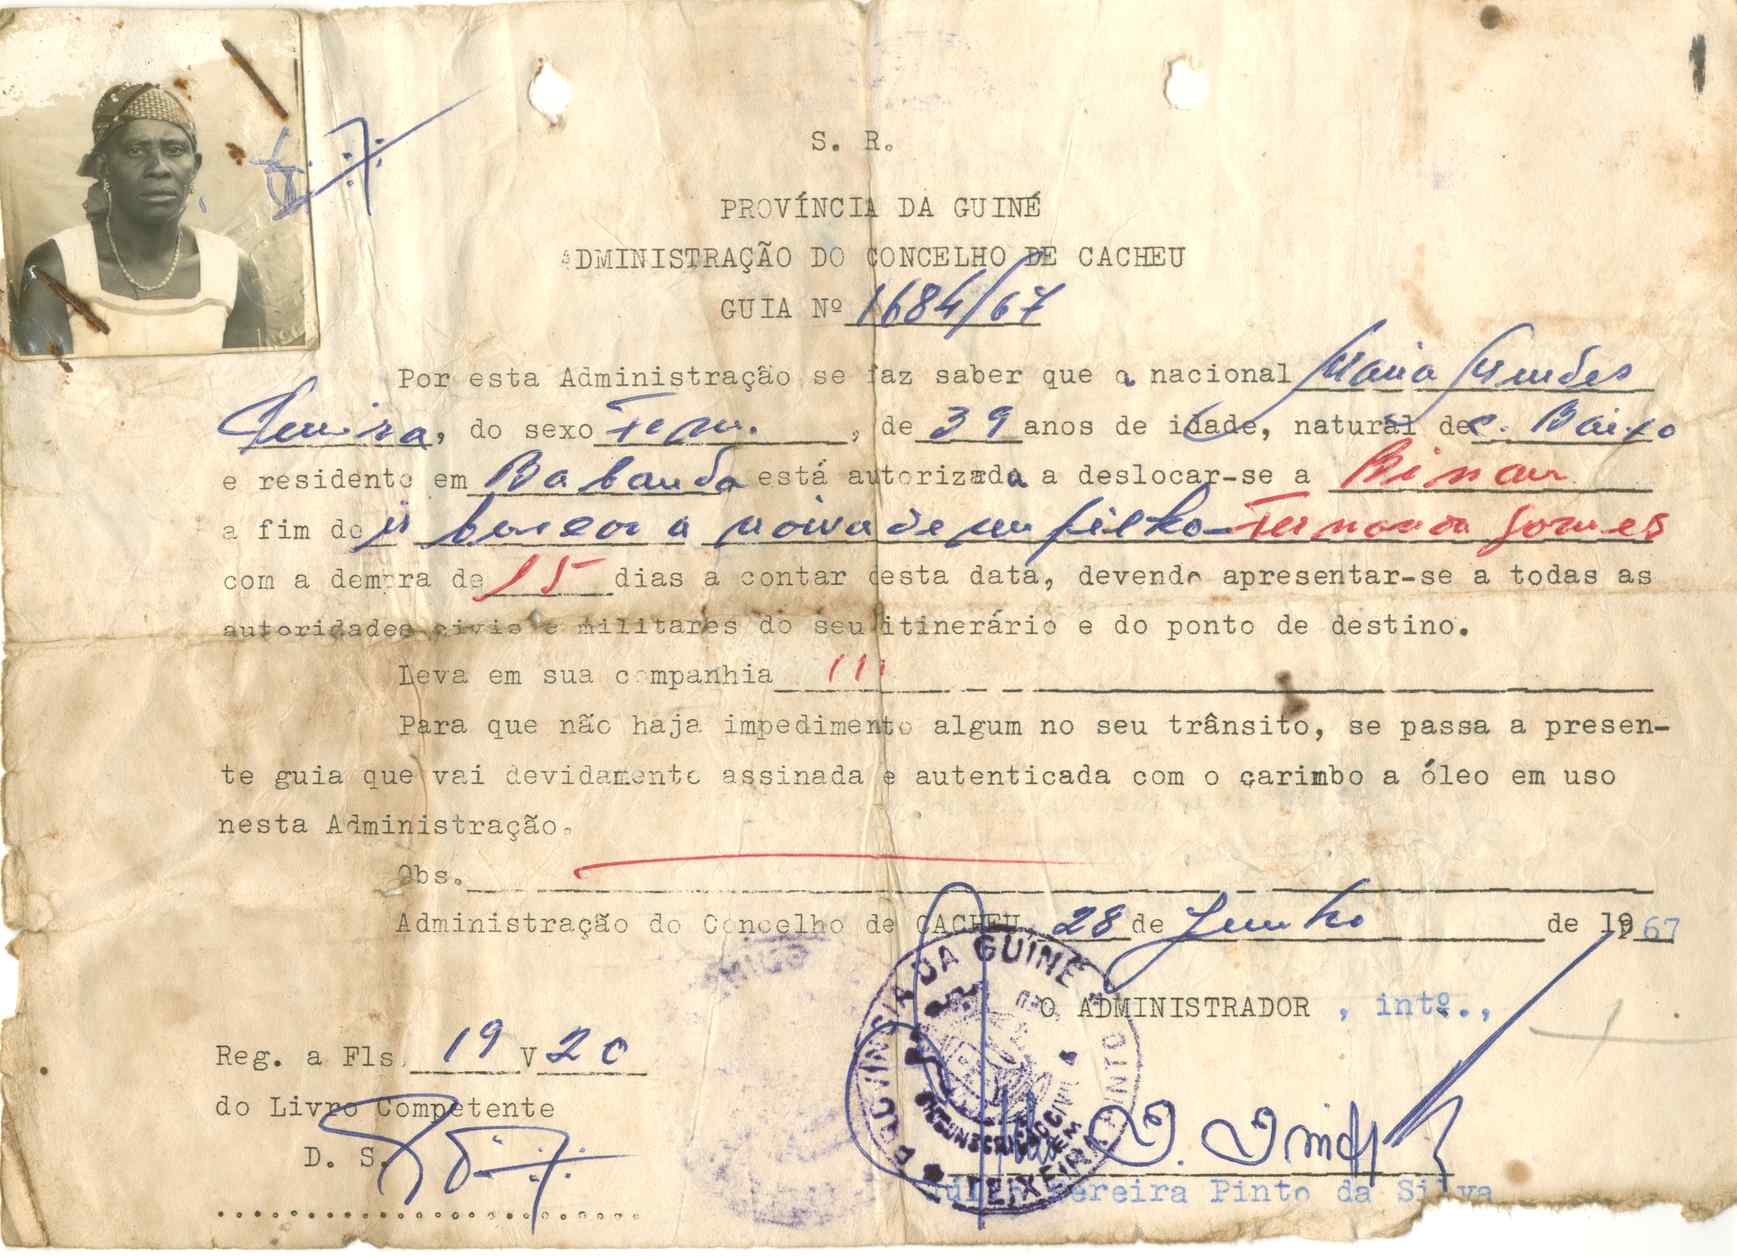 S. R.
PROVÍNCIA DA GUINÉ
ADMINISTRAÇÃO DO CONCELHO DE CACHEU
GUIA Nº 1684/67
Por esta Administração se faz saber que a nacional Maria Mendes
Pereira, do sexo Fem., de 39 anos de idade, natural de C. Baixo
e residente em Babanda está autorizada a deslocar-se a Binar
a fim de ir buscar a noiva de um filho - Fernando Gomes
com a demora de 15 dias a contar desta data, devendo apresentar-se a todas as
autoridades civis e militares do seu itinerário e do ponto de destino.
Leva em sua companhia
Para que não haja impedimento algum no seu trânsito, se passa a presen-
te guia que vai devidamente assinada e autenticada com o carimbo a óleo em uso
nesta Administração.
Obs.
Administração do Concelho de CACHEU, 28 de Junho de 1967
PROVÍNCIA DA GUINÉ
O ADMINISTRADOR, intº.,
Reg. a Fls. 19 V 20
do Livro Competente
CIRCUNSCRIÇÃO CIVIL
D. S.
TEIXEIRA PINTO
Pereira Pinto da Silva